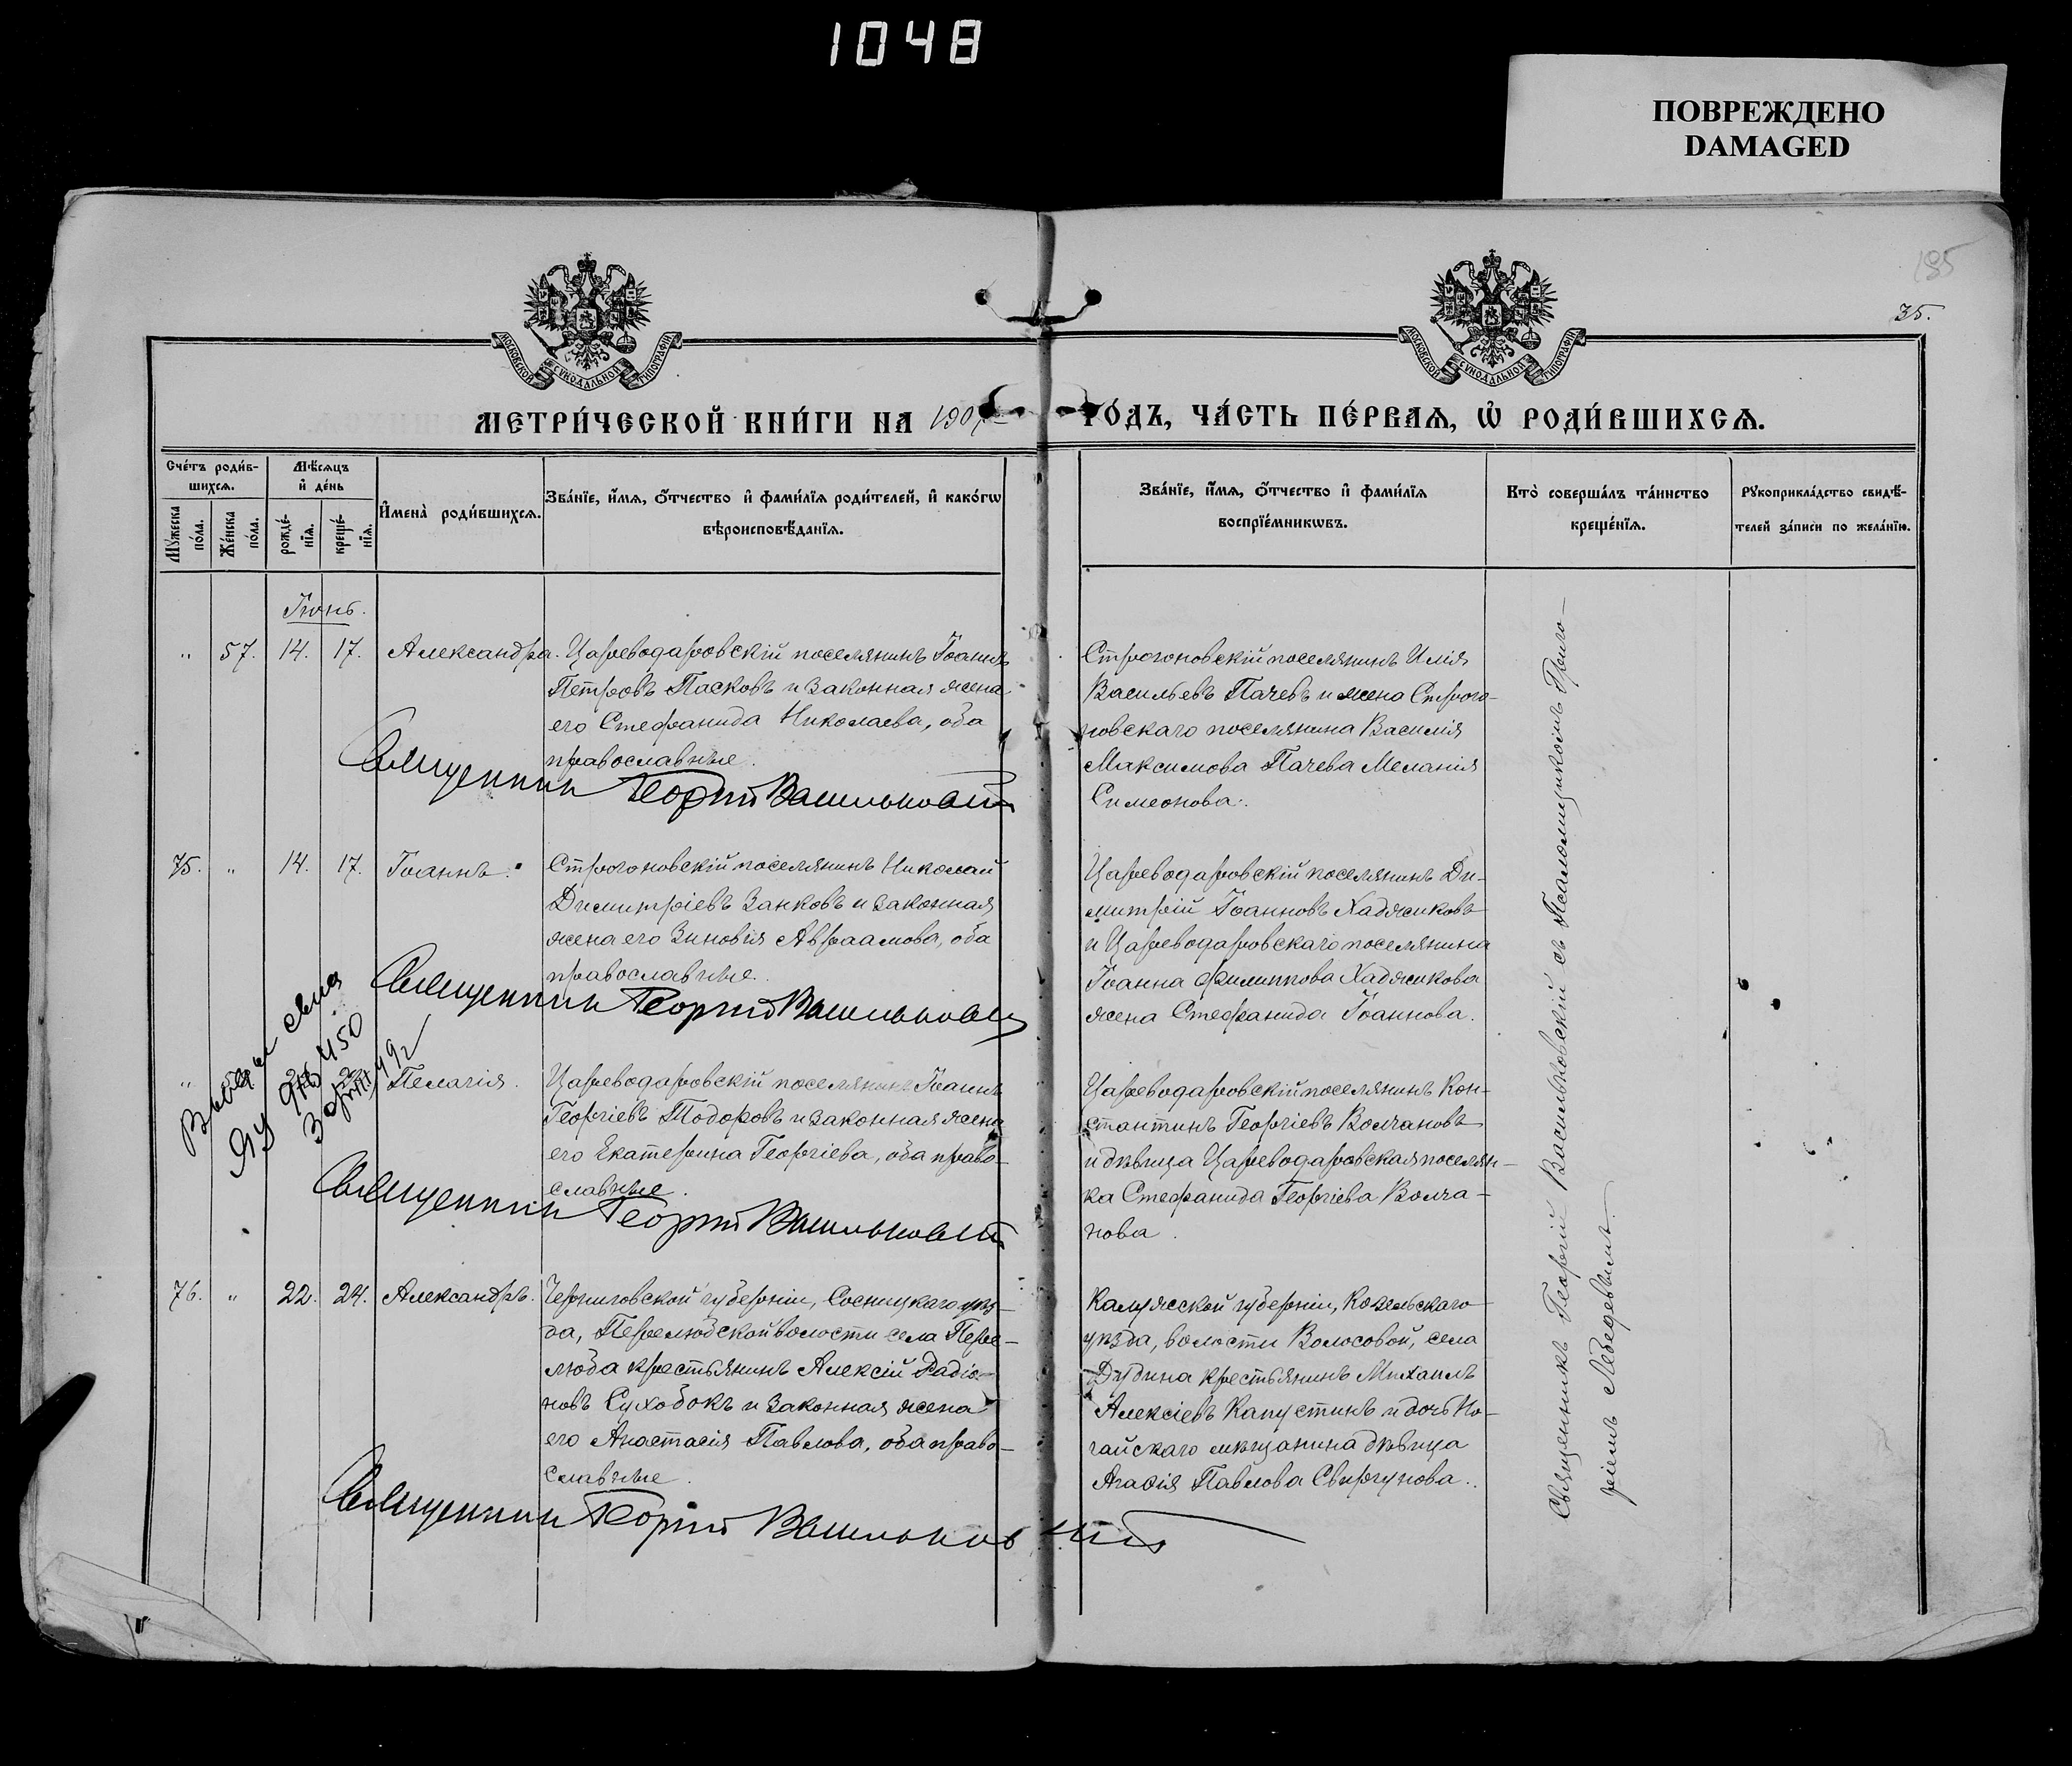 1048
ПОВРЕЖДЕНО
DAMAGED
185
35.
МОСКОВСКОЙ СѴНОДАЛЬНОЙ ТИПОГРАФІИ
МОСКОВСКОЙ СѴНОДАЛЬНОЙ ТИПОГРАФІИ
МЕТРИ́ЧЕСКОЙ КНИ́ГИ НА 190
ГО́ДЪ, ЧА́СТЬ ПЕ́РВАѦ, Ѡ҆ РОДИ́ВШИХСѦ.
Сче́тъ роди́в-
шихсѧ.
Мꙋ́жеска
по́ла.
Же́нска
по́ла.
Мѣ́сѧцъ
и҆ де́нь
рожде́-
нїѧ.
креще́-
нїѧ.
И҆мена̀ роди́вшихсѧ.
Зва́нїе, и҆́мѧ, ѻ҆́тчество и҆ фами́лїѧ роди́телей, и҆ како́гѡ
вѣроисповѣ́данїѧ.
Зва́нїе, и҆́мѧ, ѻ҆́тчество и҆ фами́лїѧ
воспрїе́мникѡвъ.
Кто̀ соверша́лъ та́инство
креще́нїѧ.
Рꙋкоприкла́дство свидѣ́-
телей за́писи по жела́нїю.
Іюнь.
" 57. 14. 17. Александра. Цареводаровскій поселянинъ Іоаннъ
Петровъ Пасковъ и законная жена
его Стефанида Николаева, оба
православные.
Священникъ Георгій Васильковскій
Строгоновскій поселянинъ Илія
Васильевъ Пачевъ и жена Строго-
новскаго поселянина Василія
Максимова Пачева Меланія
Симеонова.
75. " 14. 17. Іоаннъ. Строгоновскій поселянинъ Николай
Димитріевъ Занковъ и законная
жена его Зиновія Авраамова, оба
православные.
Священникъ Георгій Васильковскій
Цареводаровскій поселянинъ Ди-
митрій Іоанновъ Хаджиковъ
и Цареводаровскаго поселянина
Іоанна Филиппова Хаджикова
жена Стефанида Іоаннова.
" Пелагія. Цареводаровскій поселянинъ Іоаннъ
Георгіевъ Тодоровъ и законная жена
его Екатерина Георгіева, оба право-
славные.
Священникъ Георгій Васильковскій
Цареводаровскій поселянинъ Кон-
стантинъ Георгіевъ Волчановъ
и дѣвица Цареводаровская поселян-
ка Стефанида Георгіева Волча-
нова.
76. " 22. 24. Александръ. Черниговской губерніи, Сосницкаго уѣз-
да, Перелюбской волости села Пере-
люба крестьянинъ Алексій Радіо-
новъ Суходокъ и законная жена
его Анастасія Павлова, оба право-
славные.
Священникъ Георгій Васильковскій
Калужской губерніи, Козельскаго
уѣзда, волости Волосовой, села
Дудина крестьянинъ Михаилъ
Алексіевъ Капустинъ и дочь Но-
гайскаго мѣщанина дѣвица
Агафія Павлова Свиргунова.
Священникъ Георгій Васильковскій съ Псаломщикомъ Григо-
ріемъ Лебедевымъ.